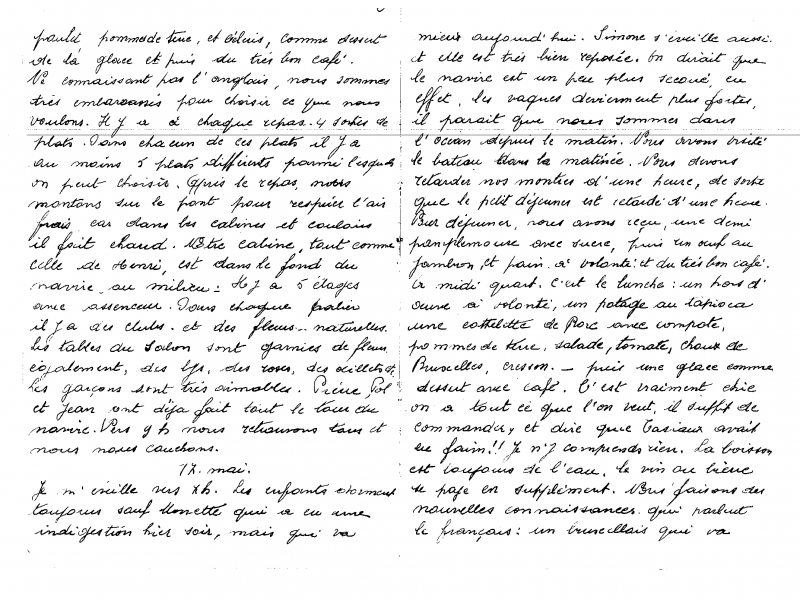 poulet pommes de terre, et céleris, comme dessert
de la glace et puis du très bon café.
Ne connaissant pas l'anglais, nous sommes
très embarassés pour choisir ce que nous
voulons. Il y a à chaque repas 4 sortes de
plats. Dans chacun de ces plats il y a
au moins 5 plats différents parmi lesquels
on peut choisir. Après le repas, nous
montons sur le pont pour respirer l'air
frais car dans les cabines et couloirs
il fait chaud. Notre cabine, tout comme
celle de Henri, est dans le fond du
navire au milieu. Il y a 5 étages
avec assenceur. Dans chaque palier
il y a des clubs. et des fleurs naturelles.
Les tables du Salon sont garnies de fleurs
également, des lys, des roses, des œillets &
Les garçons sont très aimables. Pierre Pol
et Jean ont déjà fait tout le tour du
navire. Vers 9 h nous retrouvons tous et
nous nous couchons.
17. mai.
Je m'éveille vers 8h. Les enfants dorment
toujours sauf Monette qui a eu une
indigestion hier soir, mais qui va
mieux aujourd'hui. Simone s'éveille aussi
et elle est très bien reposée. On dirait que
le navire est un peu plus secoué, en
effet, les vagues deviennent plus fortes,
il parait que nous sommes dans
l'océan depuis le matin. Nous avons visité
le bateau dans la matinée. Nous devons
retarder nos montres d'une heure, de sorte
que le petit déjeuner est retardé d'une heure.
Pour déjeuner, nous avons reçu, une demi
pamplemouse avec sucre, puis un œuf au
jambon, et pain à volonté et du très bon café.
à midi quart. c'est le lunch : un hors d'
œuvre à volonté, un potage au tapioca
une cottelette de Porc avec compote,
pommes de terre, salade, tomate, choux de
Bruxelles, cresson. - puis une glace comme
dessert avec café. C'est vraiment chic
on a tout ce que l'on veut, il suffit de
commander, et dire que Tasiaux avait
eu faim!! Je n'y comprends rien. La boisson
est toujours de l'eau, le vin ou bière
se paye en supplément. Nous faisons des
nouvelles connaissances qui parlent
le français : un bruxellois qui va